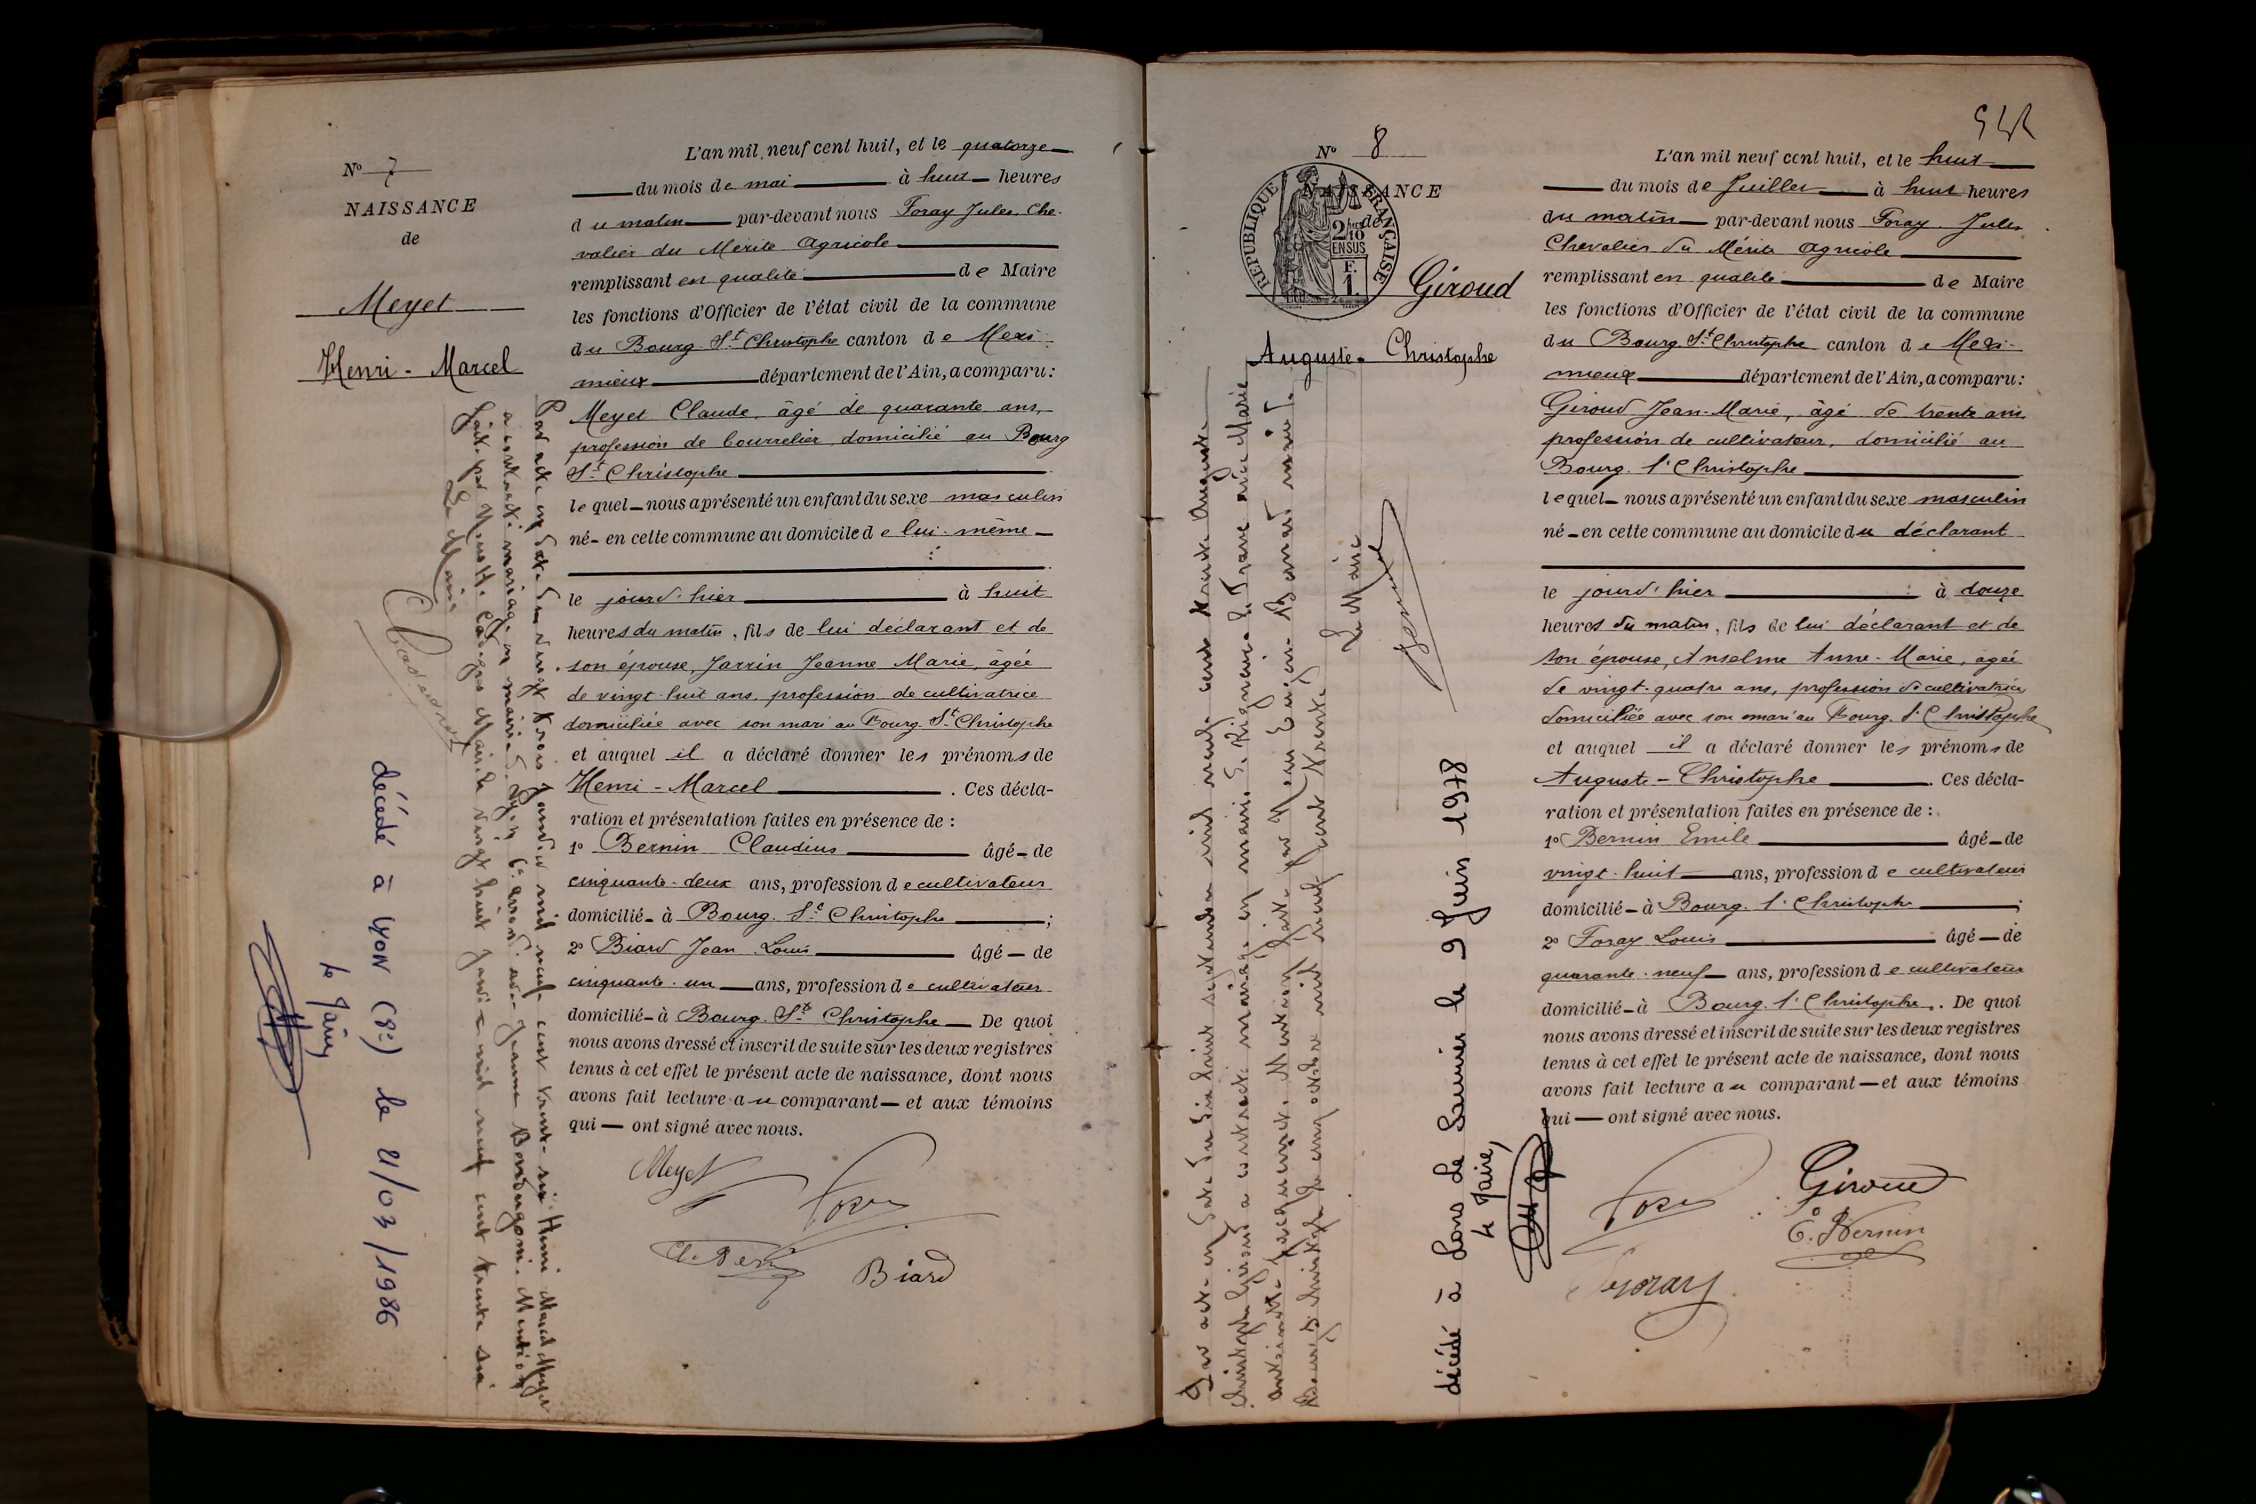 Nº 7
NAISSANCE
de
Meyet
Henri - Marcel
L'an mil neuf cent huit, et le quatorze
du mois de mai à huit heures
du matin par-devant nous Foray Jules, Che-
valier du Mérite Agricole
remplissant en qualité de Maire
les fonctions d'Officier de l'état civil de la commune
du Bourg St Christophe canton de Mexi-
mieux département de l'Ain, a comparu :
Meyet Claude, âgé de quarante ans,
profession de bourrelier domicilié au Bourg
St Christophe
lequel nous a présenté un enfant du sexe masculin
né en cette commune au domicile de lui-même
le jourd'hier à huit
heures du matin, fils de lui déclarant et de
son épouse, Jarrin Jeanne Marie, âgée
de vingt-huit ans, profession de cultivatrice
domiciliée avec son mari au Bourg St Christophe
et auquel il a déclaré donner les prénoms de
Henri - Marcel . Ces décla-
ration et présentation faites en présence de :
1º Bernin Claudius âgé de
cinquante-deux ans, profession de cultivateur
domicilié à Bourg St Christophe ;
2º Biard Jean Louis âgé de
cinquante-un ans, profession de cultivateur
domicilié à Bourg St Christophe De quoi
nous avons dressé et inscrit de suite sur les deux registres
tenus à cet effet le présent acte de naissance, dont nous
avons fait lecture au comparant et aux témoins
qui ont signé avec nous.
Meyet
Foray
Biard
Par acte en date du vingt trois janvier mil neuf cent trente-six Henri Marcel Meyet
a contracté mariage en mairie de Lyon 6e arrondt avec Jeanne Bondergoni. Mention
faite par Nous Maire le vingt huit janvier mil neuf cent trente six
Le Maire
décédé à LYON (8e) le 21/03/1986
le Maire
Nº 8
NAISSANCE
de
RÉPUBLIQUE FRANÇAISE
2/10
EN SUS
F.
1.
Giroud
Auguste - Christophe
L'an mil neuf cent huit, et le huit
du mois de Juillet à huit heures
du matin par-devant nous Foray Jules
Chevalier du Mérite Agricole
remplissant en qualité de Maire
les fonctions d'Officier de l'état civil de la commune
du Bourg St Christophe canton de Mexi-
mieux département de l'Ain, a comparu :
Giroud Jean-Marie, âgé de trente ans
profession de cultivateur, domicilié au
Bourg St Christophe
lequel nous a présenté un enfant du sexe masculin
né en cette commune au domicile du déclarant
le jourd'hier à douze
heures du matin, fils de lui déclarant et de
son épouse, Anselme Anne-Marie, agée
de vingt-quatre ans, profession de cultivatrice
domiciliée avec son mari au Bourg St Christophe
et auquel il a déclaré donner les prénoms de
Auguste - Christophe . Ces décla-
ration et présentation faites en présence de :
1º Bernin Emile âgé de
vingt-huit ans, profession de cultivateur
domicilié à Bourg St Christophe ;
2º Foray Louis âgé de
quarante-neuf ans, profession de cultivateur
domicilié à Bourg St Christophe. De quoi
nous avons dressé et inscrit de suite sur les deux registres
tenus à cet effet le présent acte de naissance, dont nous
avons fait lecture au comparant et aux témoins
qui ont signé avec nous.
Foray
Giroud
E. Bernin
Foray
Par acte en date du dix huit septembre mil neuf cent trente Auguste
Christophe Giroud a contracté mariage en mairie de Rignieux le Franc avec Marie
Antoinette Mention faite par Nous Eugène Bernard maire de
Bourg St Christophe le cinq octobre mil neuf cent trente
Le Maire
décédé à Lons le Saunier le 9 Juin 1978
le Maire,